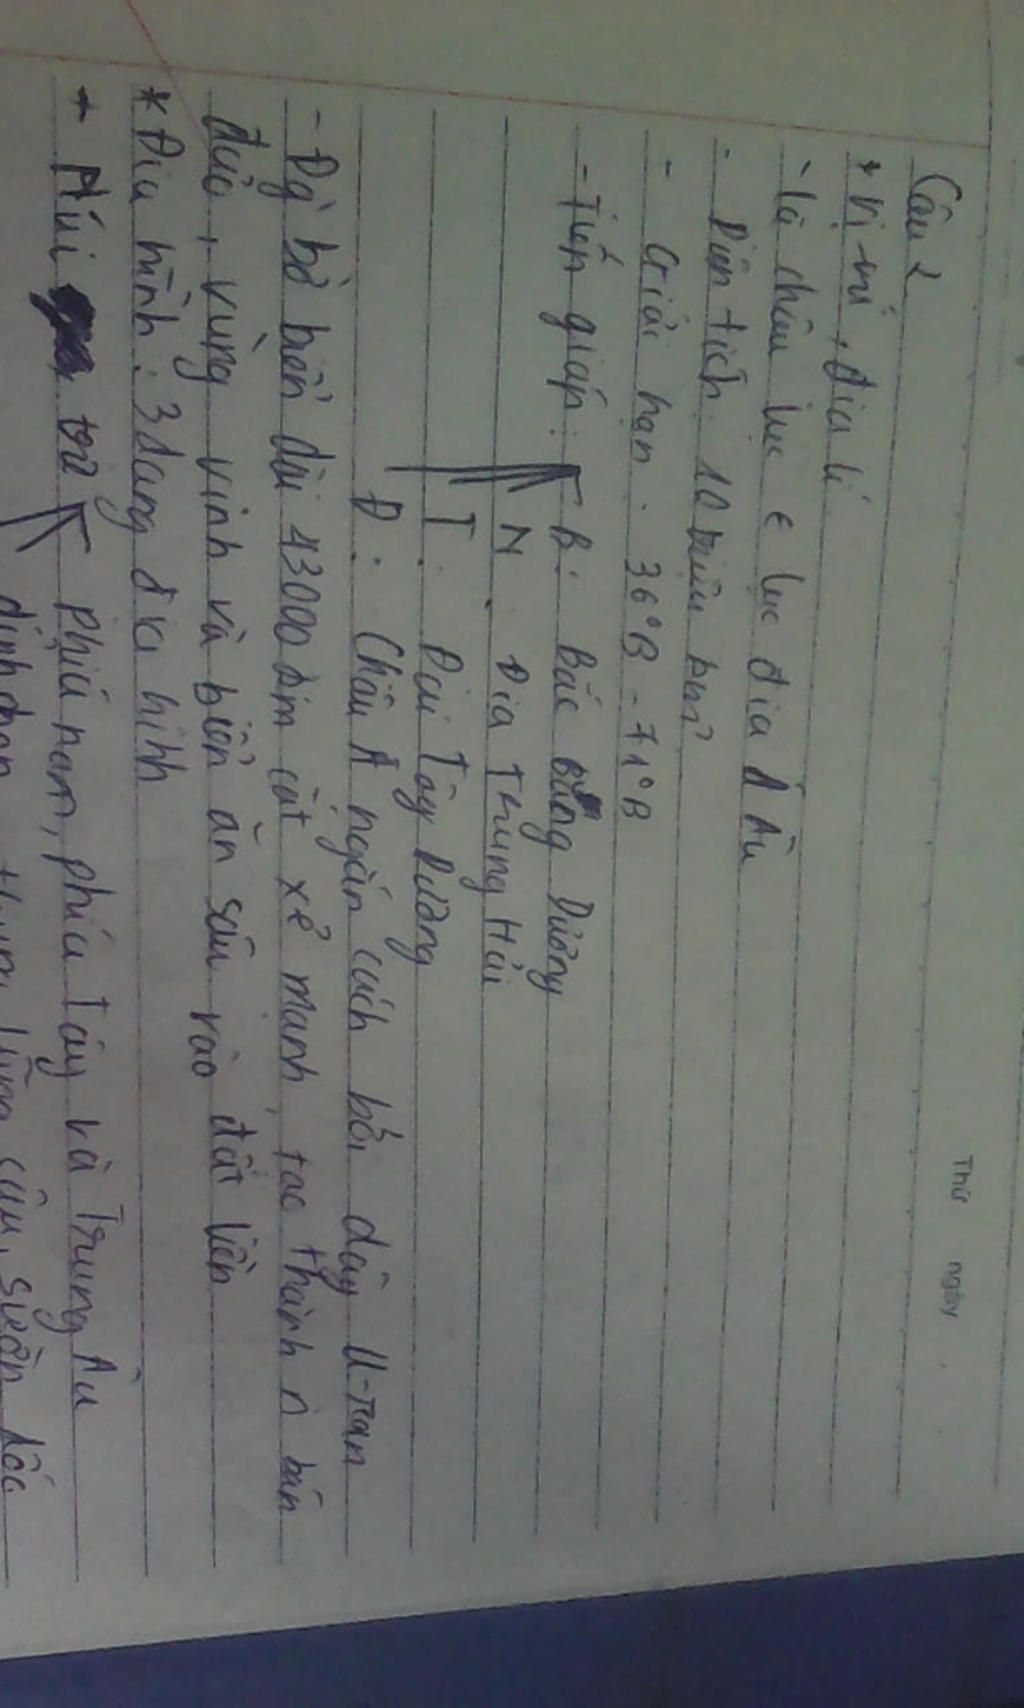 Thứ ngày
Câu 2
* Vị trí, địa lí
- Là châu lục ∈ lục địa Á Âu
- Diện tích: 10 triệu km²
- Giới hạn: 36°B - 71°B
- Tiếp giáp: B: Bắc Băng Dương
N: Địa Trung Hải
T: Đại Tây Dương
Đ: Châu Á ngăn cách bởi dãy U-ran
- Đg` bờ biển dài 43000 km cắt xẻ mạnh, tạo thành n bán
đảo, vũng vịnh và biển ăn sâu vào đất liền
* Địa hình: 3 dạng địa hình
+ Núi trẻ phía nam, phía Tây và Trung Âu
đỉnh nhọn, thung lũng sâu, sườn dốc